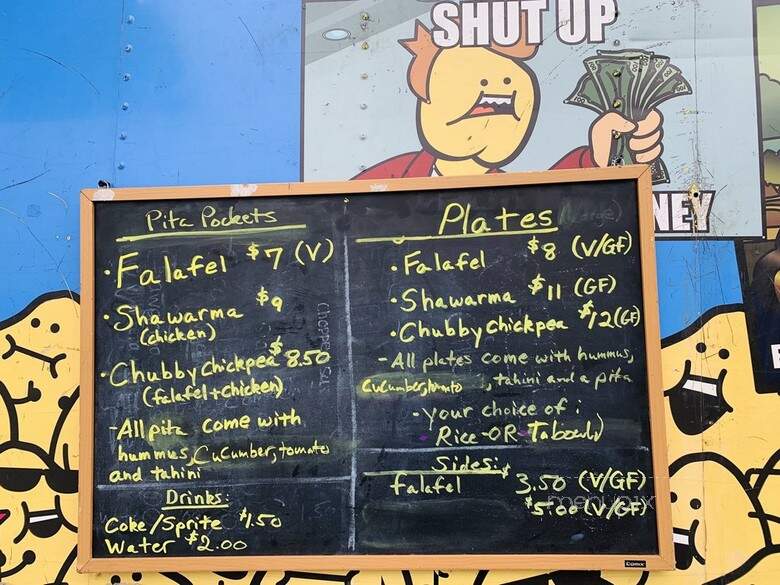 SHUT UP
NEY
Pita Pockets
· Falafel $7 (V)
· Shawarma $9
(chicken)
· Chubby chickpea $8.50
(falafel + chicken)
- All pita come with
hummus, CuCumber, tomato
and tahini
Drinks:
Coke/Sprite $1.50
Water $2.00
Plates
· Falafel $8 (V/GF)
· Shawarma $11 (GF)
· Chubby chickpea $12 (GF)
- All plates come with hummus,
CuCumber, tomato, tahini and a pita
- your choice of:
Rice -OR- Tabouli
Sides:
falafel $3.50 (V/GF)
$5.00 (V/GF)
menupix